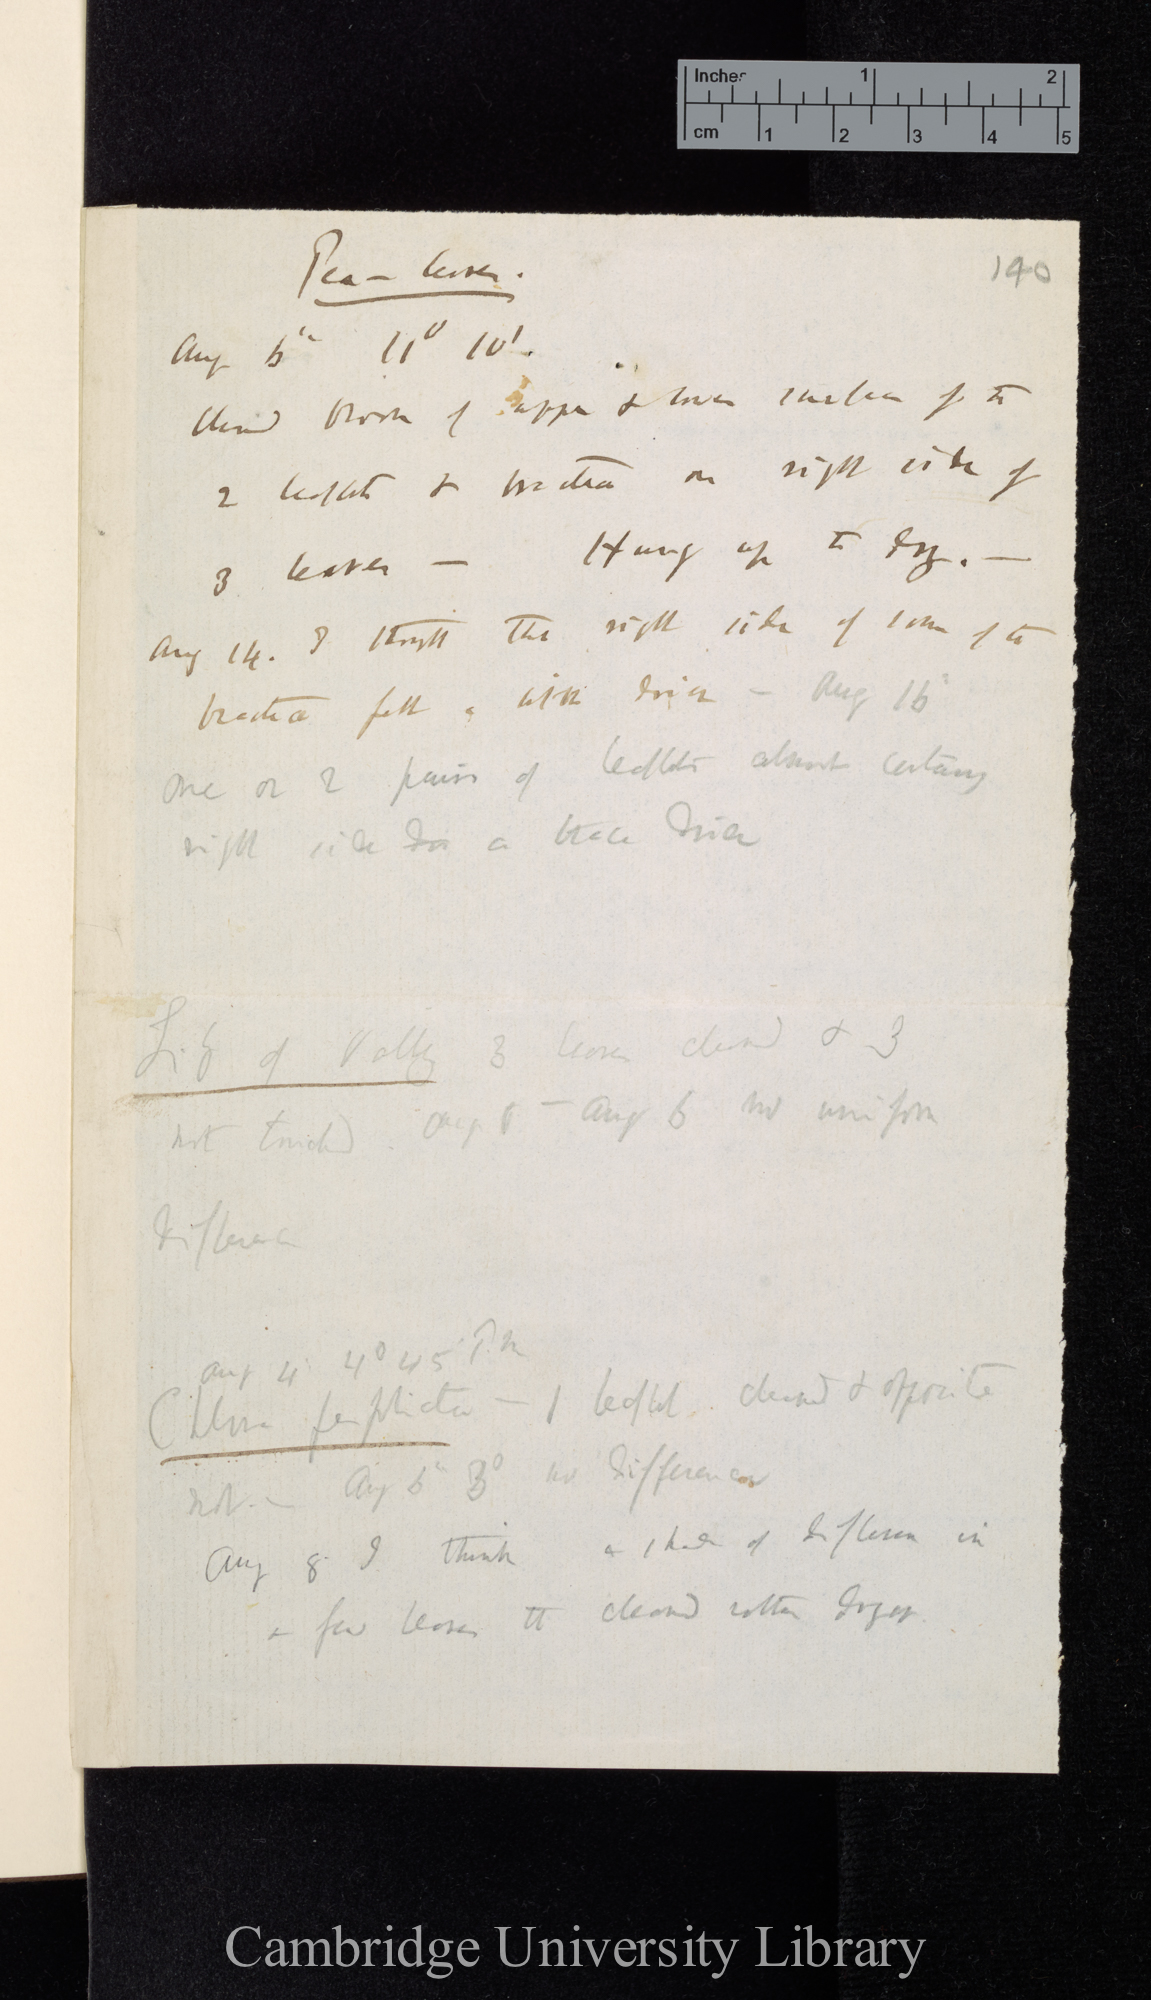 Inches 1 2
cm 1 2 3 4 5
140
Pea – leaves.
Aug 6th 11° 10'.
Cleaned bloom of upper & lower surface of the
2 leaflets & bractea on right side of
3 leaves — Hung up to dry. —
Aug 14. I thought the right side of some of the
bractea felt a little drier — Aug 16
one or 2 pairs of leaflets almost certainly
right side a trace drier
Lily of Valley 3 leaves cleaned & 3
not touched. Aug – Aug 6 no uniform
difference
Aug 4 4° 45' P.m
Chlora perfoliata — 1 leaflet cleaned & opposite
not. — Aug 6th 3° no difference
Aug 8. I think a shade of difference in
a few leaves tt cleaned rather dryer.
Cambridge University Library